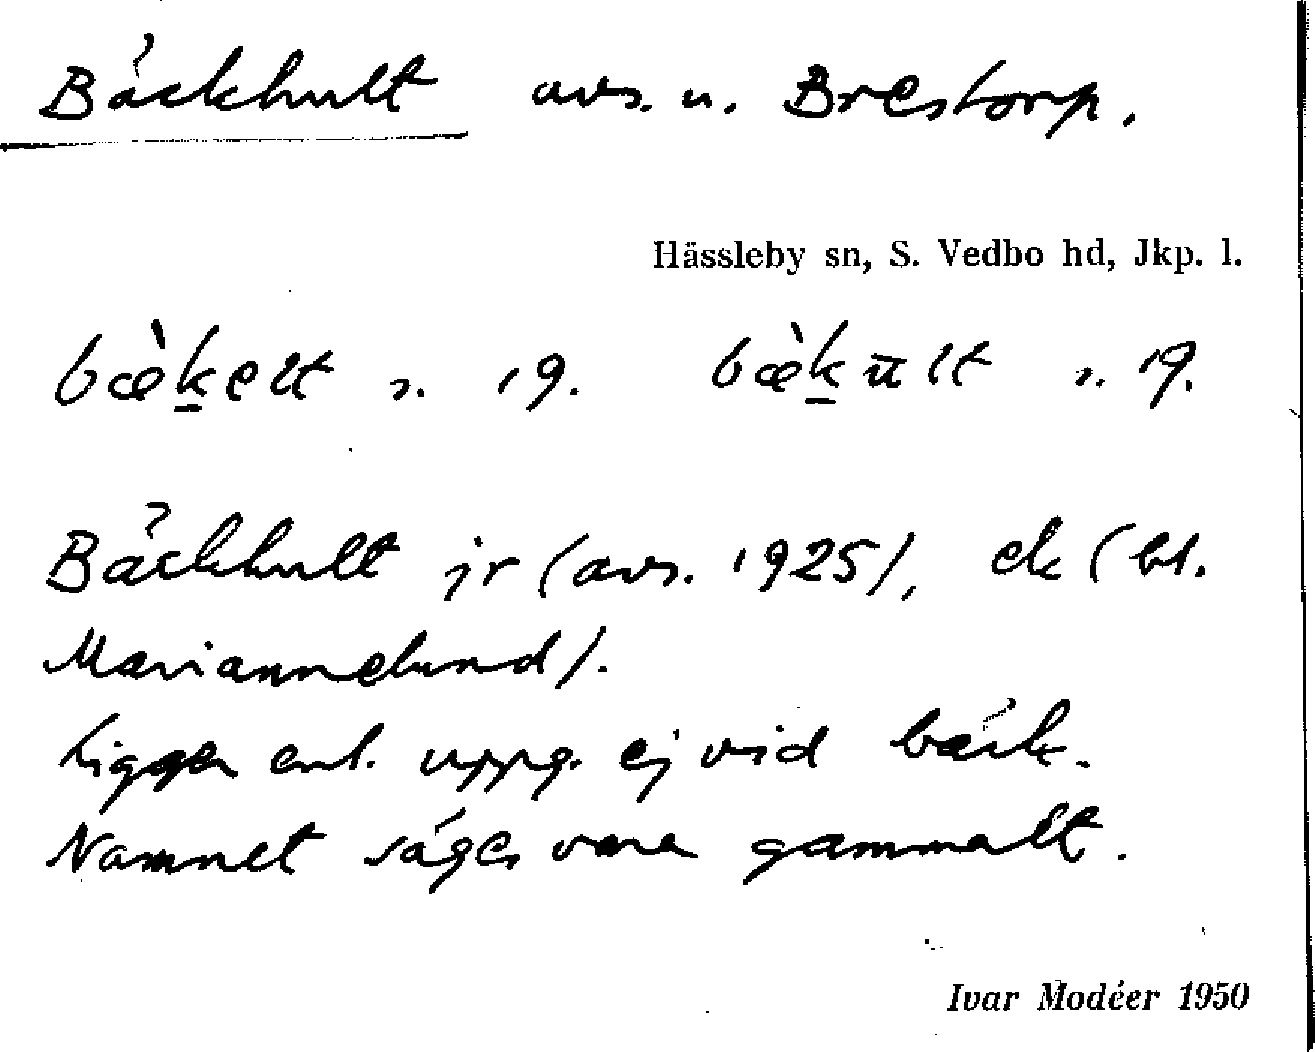 Bäckhult avs. u. Brestorp.
Hässleby sn, S. Vedbo hd, Jkp. l.
bæ̀k̲elt s. 19. bæ̀k̲ūlt s. 19.
Bäckhult jr (avs. 1925), ek (bl.
Mariannelund).
Ligger enl. uppg. ej vid bäck.
Namnet säges vara gammalt.
Ivar Modéer 1950